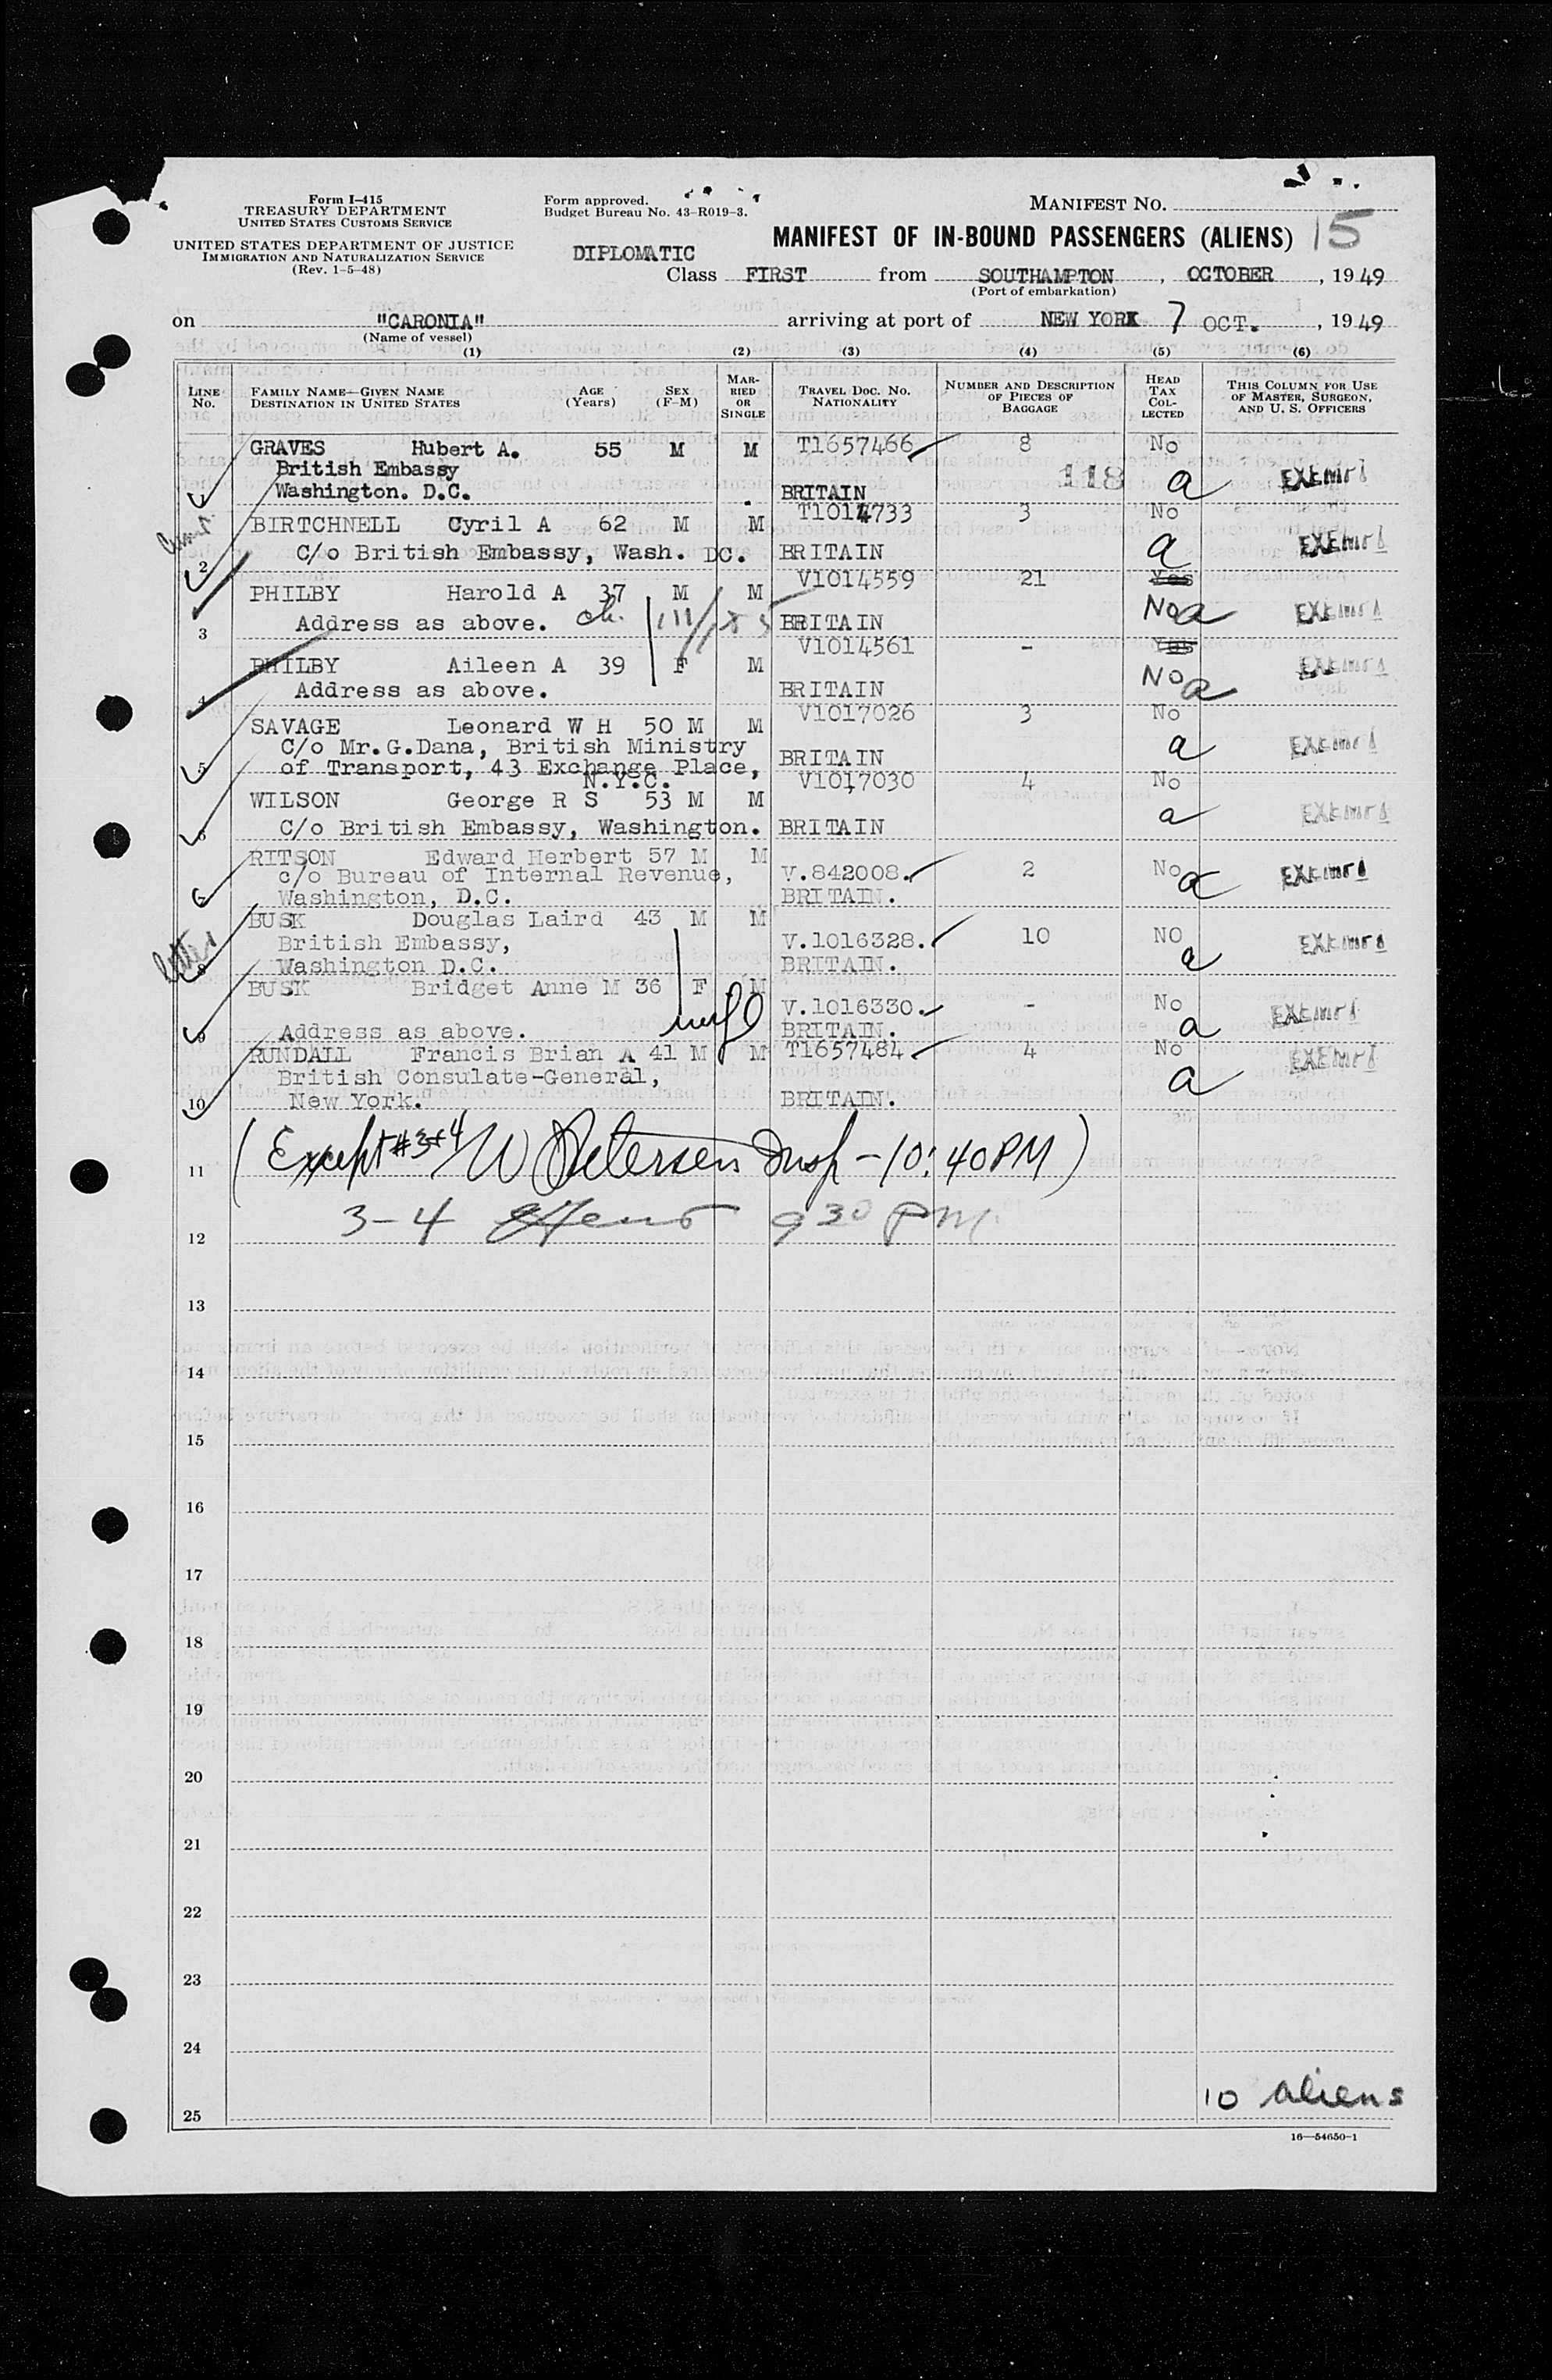 Form I-415
TREASURY DEPARTMENT
UNITED STATES CUSTOMS SERVICE
UNITED STATES DEPARTMENT OF JUSTICE
IMMIGRATION AND NATURALIZATION SERVICE
(Rev. 1-5-48)
Form approved.
Budget Bureau No. 43-R019-3.
MANIFEST NO.
MANIFEST OF IN-BOUND PASSENGERS (ALIENS) 15
DIPLOMATIC
Class FIRST from SOUTHAMPTON, OCTOBER, 1949
(Port of embarkation)
on "CARONIA" arriving at port of NEW YORK 7 OCT., 1949
(Name of vessel)
(1) (2) (3) (4) (5) (6)
LINE NO. FAMILY NAME—GIVEN NAME DESTINATION IN UNITED STATES AGE (Years) SEX (F-M) MARRIED OR SINGLE TRAVEL DOC. NO. NATIONALITY NUMBER AND DESCRIPTION OF PIECES OF BAGGAGE HEAD TAX COLLECTED THIS COLUMN FOR USE OF MASTER, SURGEON, AND U. S. OFFICERS
GRAVES Hubert A. 55 M M T1657466 8 No
British Embassy 118 a EXEMPT
1 Washington. D.C. BRITAIN
BIRTCHNELL Cyril A 62 M M T1014733 3 No
2 C/o British Embassy, Wash. DC. BRITAIN a EXEMPT
PHILBY Harold A 37 M M V1014559 21 Yes
3 Address as above. BRITAIN No a EXEMPT
PHILBY Aileen A 39 F M V1014561 - Yes
4 Address as above. BRITAIN No a EXEMPT
SAVAGE Leonard W H 50 M M V1017026 3 No
C/o Mr.G.Dana, British Ministry a EXEMPT
5 of Transport, 43 Exchange Place, BRITAIN
N.Y.C.
WILSON George R S 53 M M V1017030 4 No
6 C/o British Embassy, Washington. BRITAIN a EXEMPT
RITSON Edward Herbert 57 M M
c/o Bureau of Internal Revenue, V.842008. 2 No a EXEMPT
Washington, D.C. BRITAIN.
BUSK Douglas Laird 43 M M
British Embassy, V.1016328. 10 NO EXEMPT
8 Washington D.C. BRITAIN. a
BUSK Bridget Anne M 36 F M
V.1016330. - No EXEMPT
9 Address as above. BRITAIN. a
RUNDALL Francis Brian A 41 M M T1657484 4 No EXEMPT
British Consulate-General, a
10 New York. BRITAIN.
11 (Except #3+4/ W Petersen Insp - 10:40PM)
12 3-4 930 PM.
13
14
15
16
17
18
19
20
21
22
23
24
10 aliens
25
16—54650-1